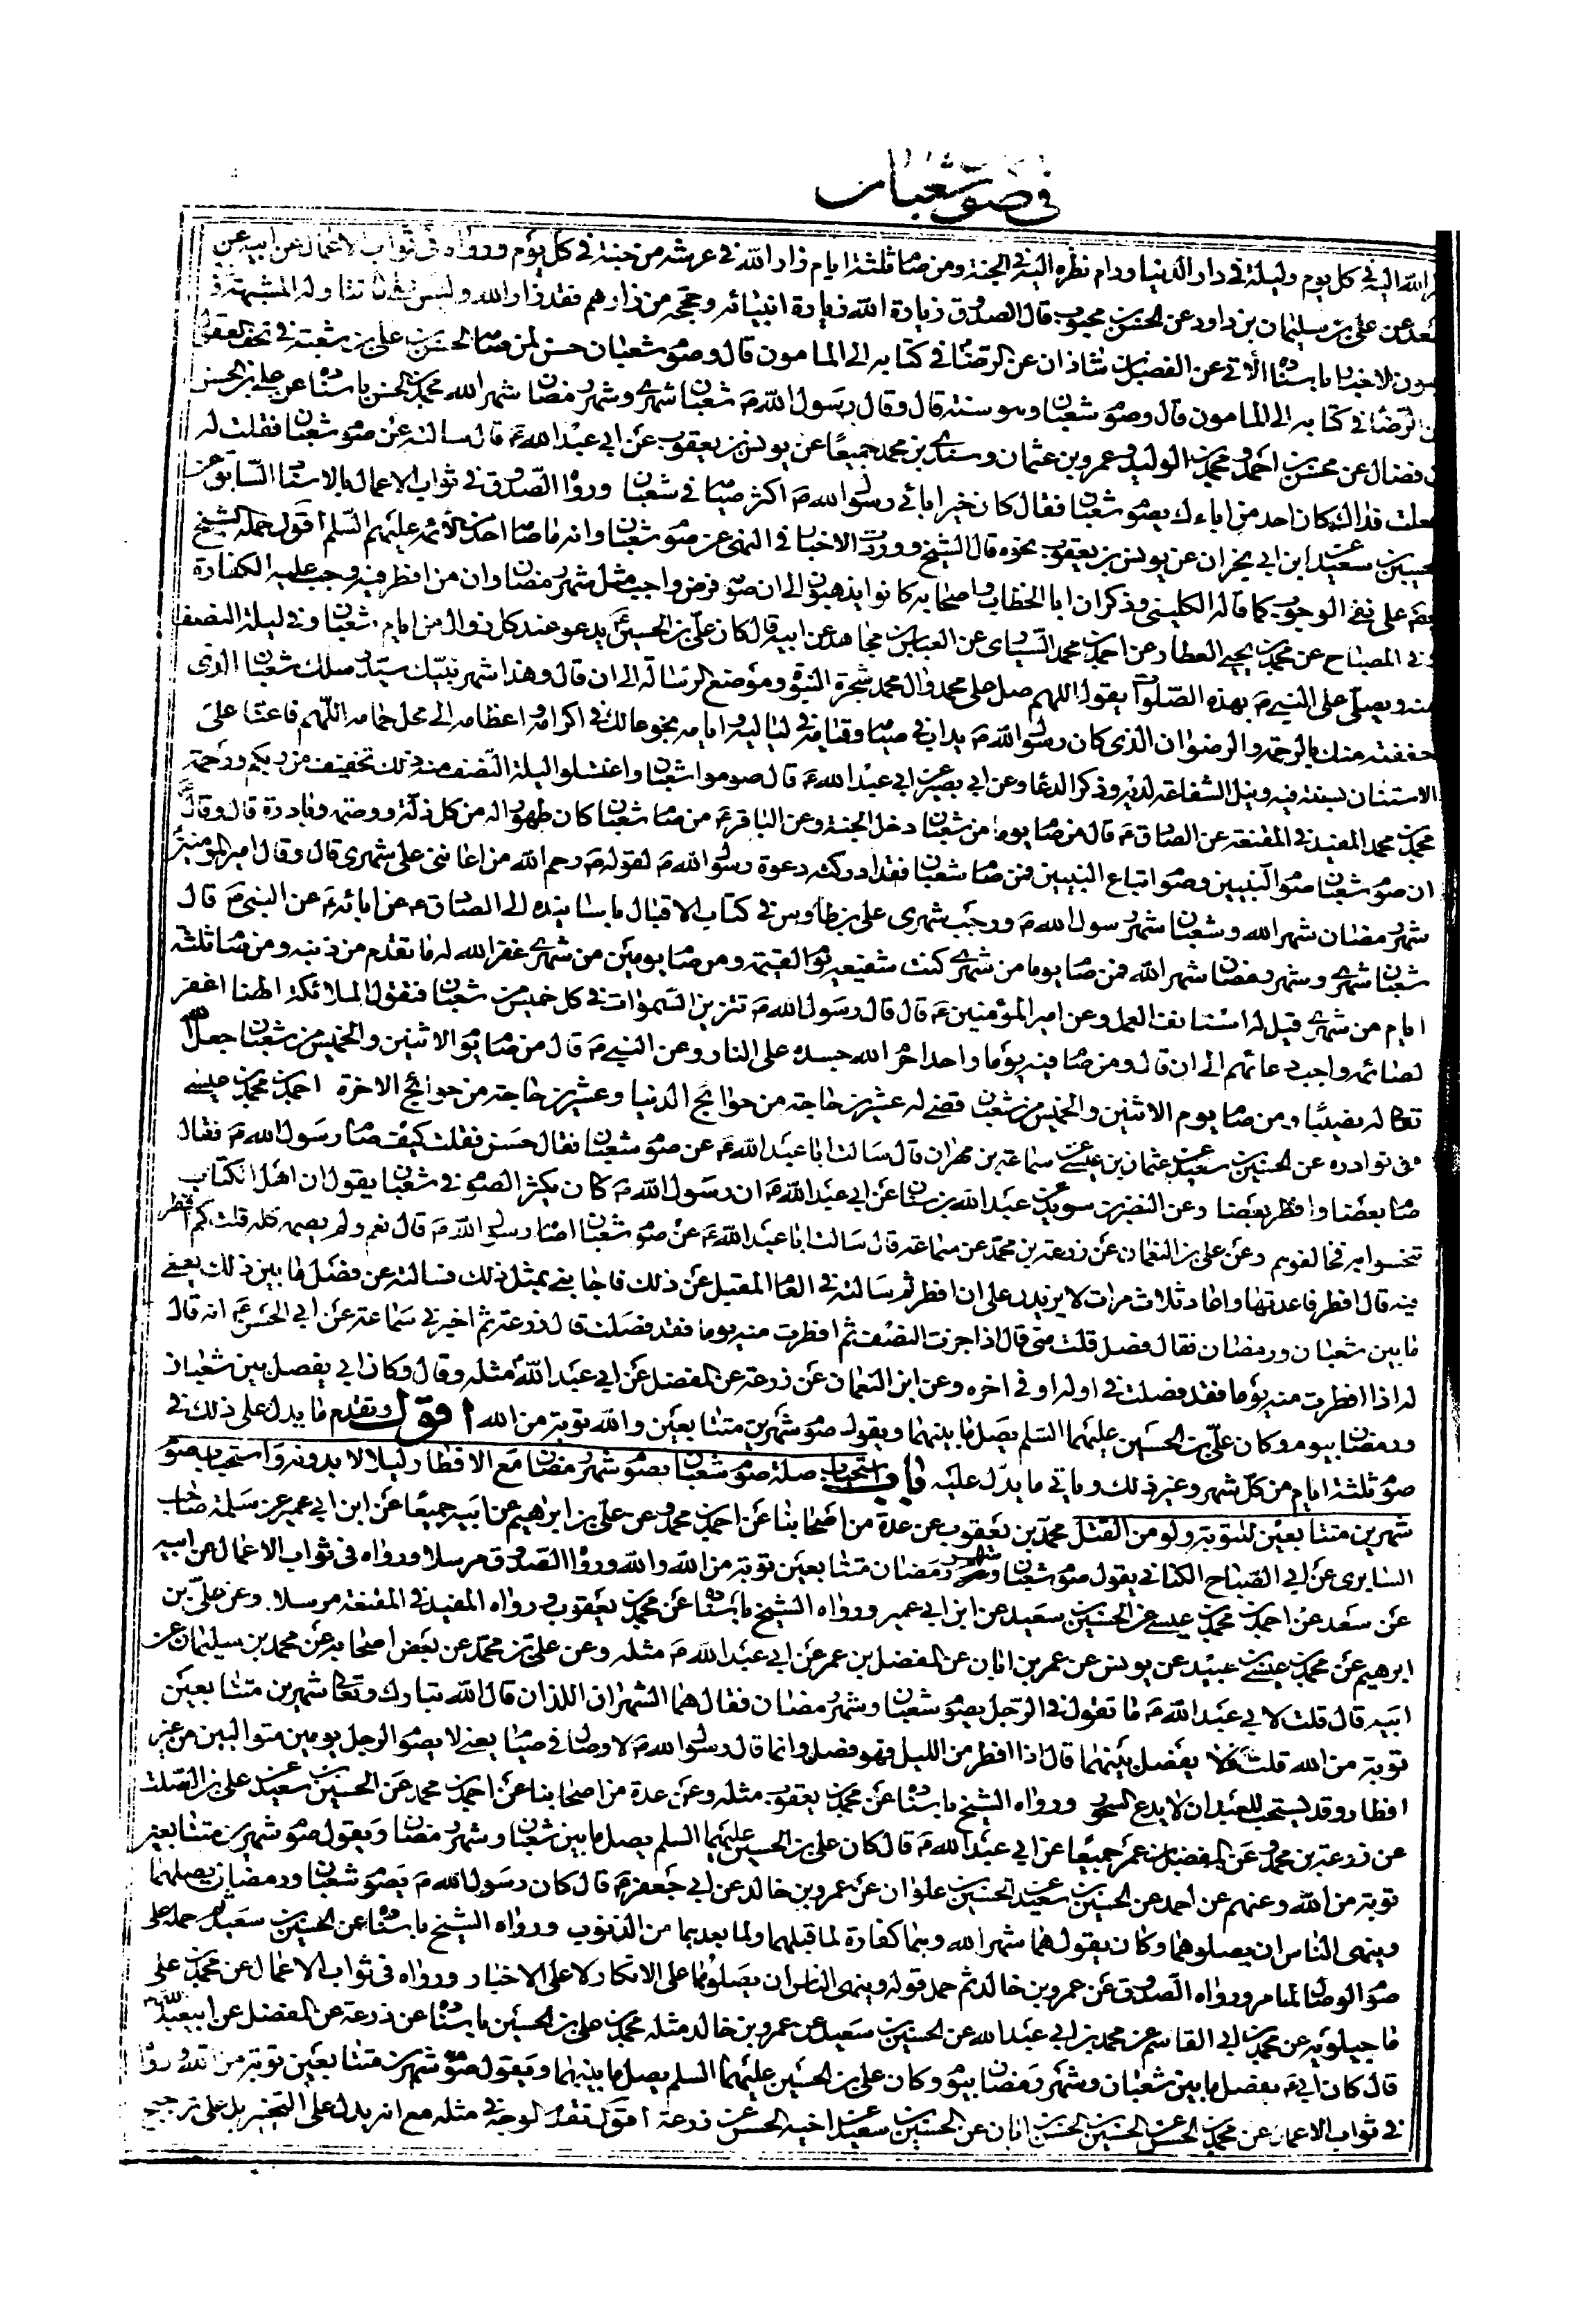 في صوم شعبان
الله اليه في كل يوم وليلة في دار الدنيا ودام نظره اليه في الجنة ومن صام ثلثة ايام زار الله في عرشه من جنته في كل يوم ورواه في ثواب الاعمال عن ابيه عن
سعد عن علي بن سليمان بن داود عن الحسن بن محبوب قال الصدوق زيارة الله زيارة انبيائه وحججه من زارهم فقد زار الله وليس على ما تتاوله المشبهة وفي
عيون الاخبار باسناده الاتي عن الفضل بن شاذان عن الرضا في كتابه الى المامون قال وصوم شعبان حسن لمن صامه الحسن بن علي بن شعبة في تحف العقول
عن الرضا في كتابه الى المامون قال وصوم شعبان وهو سنة قال وقال رسول الله ص شعبان شهري وشهر رمضان شهر الله محمد بن الحسن باسناده عن علي بن الحسن
بن فضال عن محسن بن احمد ومحمد بن الوليد وعمرو بن عثمان وسندي بن محمد جميعا عن يونس بن يعقوب عن ابي عبد الله ع قال سالته عن صوم شعبان فقلت له
جعلت فداك كان احد من اباءك يصوم شعبان فقال كان خير ابائي رسول الله ص اكثر صيامه في شعبان وروا الصدوق في ثواب الاعمال بالاسناد السابق عن
الحسين بن سعيد عن ابن ابي نجران عن يونس بن يعقوب نحوه قال الشيخ ووردت الاخبار في النهي عن صوم شعبان وانه ما صامه احد من الائمه عليهم السلم اقول حمله الشيخ
بعضهم على نفي الوجوب كما قاله الكليني وذكر ان ابا الخطاب واصحابه كانوا يذهبون الى ان صومه فرض واجب مثل شهر رمضان وان من افطر فيه وجب عليه الكفارة
وفي المصباح عن محمد بن يحيى العطار عن احمد بن محمد السياري عن العباس بن مجاهد عن ابيه قال كان علي بن الحسين ع يدعو عند كل زوال من ايام شعبان وفي ليلة النصف
منه ويصلي على النبي ص بهذه الصلوات يقول اللهم صل على محمد وال محمد شجرة النبوة وموضع الرسالة الى ان قال وهذا شهر نبيك سيد رسلك شعبان الذي
حففته منك بالرحمة والرضوان الذي كان رسول الله ص يداب في صيامه وقيامه في لياليه وايامه بخوعا لك في اكرامه واعظامه الى محل حمامه اللهم فاعنا على
الاستنان بسنته فيه ونيل الشفاعة لديه وذكر الدعا وعن ابي بصير عن ابي عبد الله ع قال صوموا شعبان واغتسلوا ليلة النصف منه ذلك تخفيف من ربكم ورحمة
محمد بن محمد المفيد في المقنعة عن الصادق ع قال من صام يوما من شعبان دخل الجنة وعن الباقر ع من صام شعبان كان طهورا له من كل زلة ووصمة وبادرة قال وقال
ان صوم شعبان صوم النبيين وصوم اتباع النبيين فمن صام شعبان فقد ادركته دعوة رسول الله ص لقوله ص رحم الله من اعانني على شهري قال وقال امير المؤمنين
شهر رمضان شهر الله وشعبان شهر رسول الله ص ورجب شهري علي بن طاوس في كتاب الاقبال باسانيده الى الصادق ع عن ابائه ع عن النبي ص قال
شعبان شهري وشهر رمضان شهر الله فمن صام يوما من شهري كنت شفيعه يوم القيمة ومن صام يومين من شهري غفر الله له ما تقدم من ذنبه ومن صام ثلثة
ايام من شهري قيل له استانف العمل وعن امير المؤمنين ع قال قال رسول الله ص تتزين السموات في كل خميس من شعبان فتقول الملائكة الهنا اغفر
لصائمه واجب دعائهم الى ان قال ومن صام فيه يوما واحدا حرم الله جسده على النار وعن النبي ص قال من صام يوم الاثنين والخميس من شعبان جعل الله
تعالى له نصيبا ومن صام يوم الاثنين والخميس من شعبان قضي له عشرين حاجة من حوائج الدنيا وعشرين حاجة من حوائج الاخرة احمد بن محمد بن عيسى
في نوادره عن الحسين بن سعيد عن عثمان بن عيسى عن سماعة بن مهران قال سالت ابا عبد الله ع عن صوم شعبان فقال حسن فقلت كيف صام رسول الله ص فقال
صام بعضا وافطر بعضا وعن النضر بن سويد عن عبد الله بن سنان عن ابي عبد الله ع ان رسول الله ص كان يكثر الصوم في شعبان يقول ان اهل الكتاب
تنحسوا به فخالفوهم وعن علي بن النعمان عن زرعة بن محمد عن سماعة قال سالت ابا عبد الله ع عن صوم شعبان اصامه رسول الله ص قال نعم ولم يصمه كله قلت كم افطر
منه قال افطر فاعدتها واعاد ثلاث مرات لا يزيدني على ان افطر ثم سالته في العام المقبل عن ذلك فاجابني بمثل ذلك فسالته عن فصل ما بين ذلك يعني
ما بين شعبان ورمضان فقال فصل قلت متى قال اذا جزت النصف ثم افطرت منه يوما فقد فصلت قال زرعة ثم اخبرني سماعة عن ابي الحسن ع انه قال
له اذا افطرت منه يوما فقد فصلت في اوله او في اخره وعن ابن النعمان عن زرعة عن المفضل عن ابي عبد الله مثله وقال وكان ابي يفصل بين شعبان
ورمضان بيوم وكان علي بن الحسين عليهما السلم يصل ما بينهما ويقول صوم شهرين متتابعين والله توبة من الله اقول وتقدم ما يدل على ذلك في
صوم ثلثة ايام من كل شهر وغير ذلك وياتي ما يدل عليه باب استحباب صلة صوم شعبان بصوم شهر رمضان مع الافطار ليلا لا بدونه واستحباب صوم
شهرين متتابعين للتوبة ولو من القتل محمد بن يعقوب عن عدة من اصحابنا عن احمد بن محمد وعن علي بن ابراهيم عن ابيه جميعا عن ابن ابي عمير عن سلمة صاحب
السابري عن ابي الصباح الكناني يقول صوم شعبان وشهر رمضان متتابعين توبة من الله والله ورواه الصدوق مرسلا ورواه في ثواب الاعمال عن ابيه
عن سعد عن احمد بن محمد بن عيسى عن الحسين بن سعيد عن ابن ابي عمير ورواه الشيخ باسناده عن محمد بن يعقوب ورواه المفيد في المقنعة مرسلا وعن علي بن
ابرهيم عن محمد بن عيسى بن عبيد عن يونس عن عمر بن ابان عن المفضل بن عمر عن ابي عبد الله ع مثله وعن علي بن محمد عن بعض اصحابه عن محمد بن سليمان عن
ابيه قال قلت لابي عبد الله ع ما تقول في الرجل يصوم شعبان وشهر رمضان فقال هما الشهران اللذان قال الله تبارك وتعالى شهرين متتابعين
توبة من الله قلت فلا يفصل بينهما قال اذا افطر من الليل فهو فصل وانما قال رسول الله ص لا وصال في صيام يعني لا يصوم الرجل يومين متواليين من غير
افطار وقد يستحب للعبد ان لا يدع السحور ورواه الشيخ باسناده عن محمد بن يعقوب مثله وعن عدة من اصحابنا عن احمد بن محمد عن الحسين بن سعيد عن علي بن الصلت
عن زرعة بن محمد وعن المفضل بن عمر جميعا عن ابي عبد الله ع قال كان علي بن الحسين عليهما السلم يصل ما بين شعبان وشهر رمضان ويقول صوم شهرين متتابعين
توبة من الله وعنهم عن احمد عن الحسين بن سعيد عن الحسين بن علوان عن عمرو بن خالد عن ابي جعفر ع قال كان رسول الله ص يصوم شعبان ورمضان يصلهما
وينهى الناس ان يصلوهما وكان يقول هما شهر الله وهما كفارة لما قبلهما ولما بعدهما من الذنوب ورواه الشيخ باسناده عن الحسين بن سعيد ثم حمله على
صوم الوصال لما مر ورواه الصدوق عن عمرو بن خالد ثم حمل قوله وينهى الناس ان يصلوهما على الانكار لا على الاخبار ورواه في ثواب الاعمال عن محمد بن علي
ماجيلويه عن محمد بن ابي القاسم عن محمد بن ابي عبد الله عن الحسين بن سعيد عن عمرو بن خالد مثله محمد بن علي بن الحسين باسناده عن زرعة عن المفضل عن ابي عبد الله
قال كان ابي ع يفصل ما بين شعبان وشهر رمضان بيوم وكان علي بن الحسين عليهما السلم يصل ما بينهما ويقول صوم شهرين متتابعين توبة من الله ورواه
في ثواب الاعمال عن محمد بن الحسن عن الحسين بن الحسن بن ابان عن الحسين بن سعيد عن اخيه الحسن عن زرعة اقول تقدم الوجه في مثله مع انه يدل على التخيير بل على ترجيح